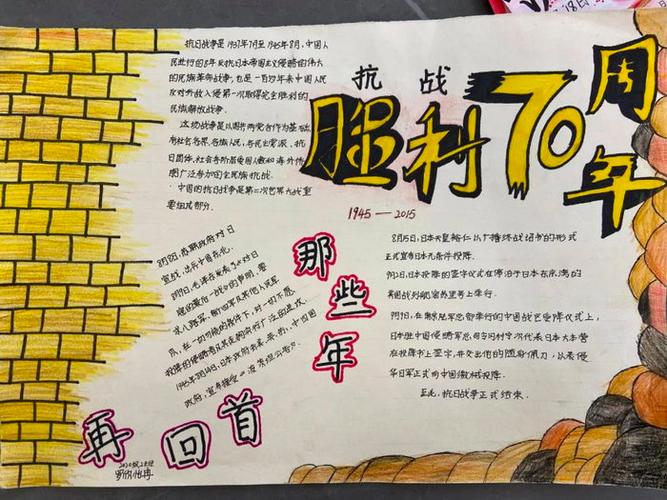 抗战
胜利70周年
1945—2015
抗日战争是1937年7月至1945年8月,中国人
民进行的8年反抗日本帝国主义侵略的伟大
的民族革命战争,也是一百多年来中国人民
反对外敌入侵第一次取得完全胜利的
民族解放战争。
这场战争是以国共两党合作为基础,
有社会各界、各族人民、各民主党派、抗
日团体、社会各阶层爱国人士和海外侨
胞广泛参加的全民族抗战。
中国的抗日战争是第二次世界大战重
要组成部分。
那些年
再回首
8月8日,苏联政府对日
宣战,出兵中国东北。
8月9日,毛泽东发表了《对日
寇的最后一战》的声明,要
求八路军、新四军及其他人民军
队,在一切可能的条件下,对一切不愿
投降的侵略者及其走狗实行广泛的进攻。
1945年8月14日,日本政府照会美、英、苏、中四国
政府,宣布接受《波茨坦公告》。
8月15日,日本天皇裕仁以广播终战诏书的形式
正式宣布日本无条件投降。
9月2日,日本投降的签字仪式在停泊于日本东京湾的
美国战列舰密苏里号上举行。
9月9日,在南京陆军总部举行的中国战区受降仪式上,
日本驻中国侵略军总司令冈村宁次代表日本大本营
在投降书上签字,并交出他的随身佩刀,以表侵
华日军正式向中国缴械投降。
至此,抗日战争正式结束。
18日